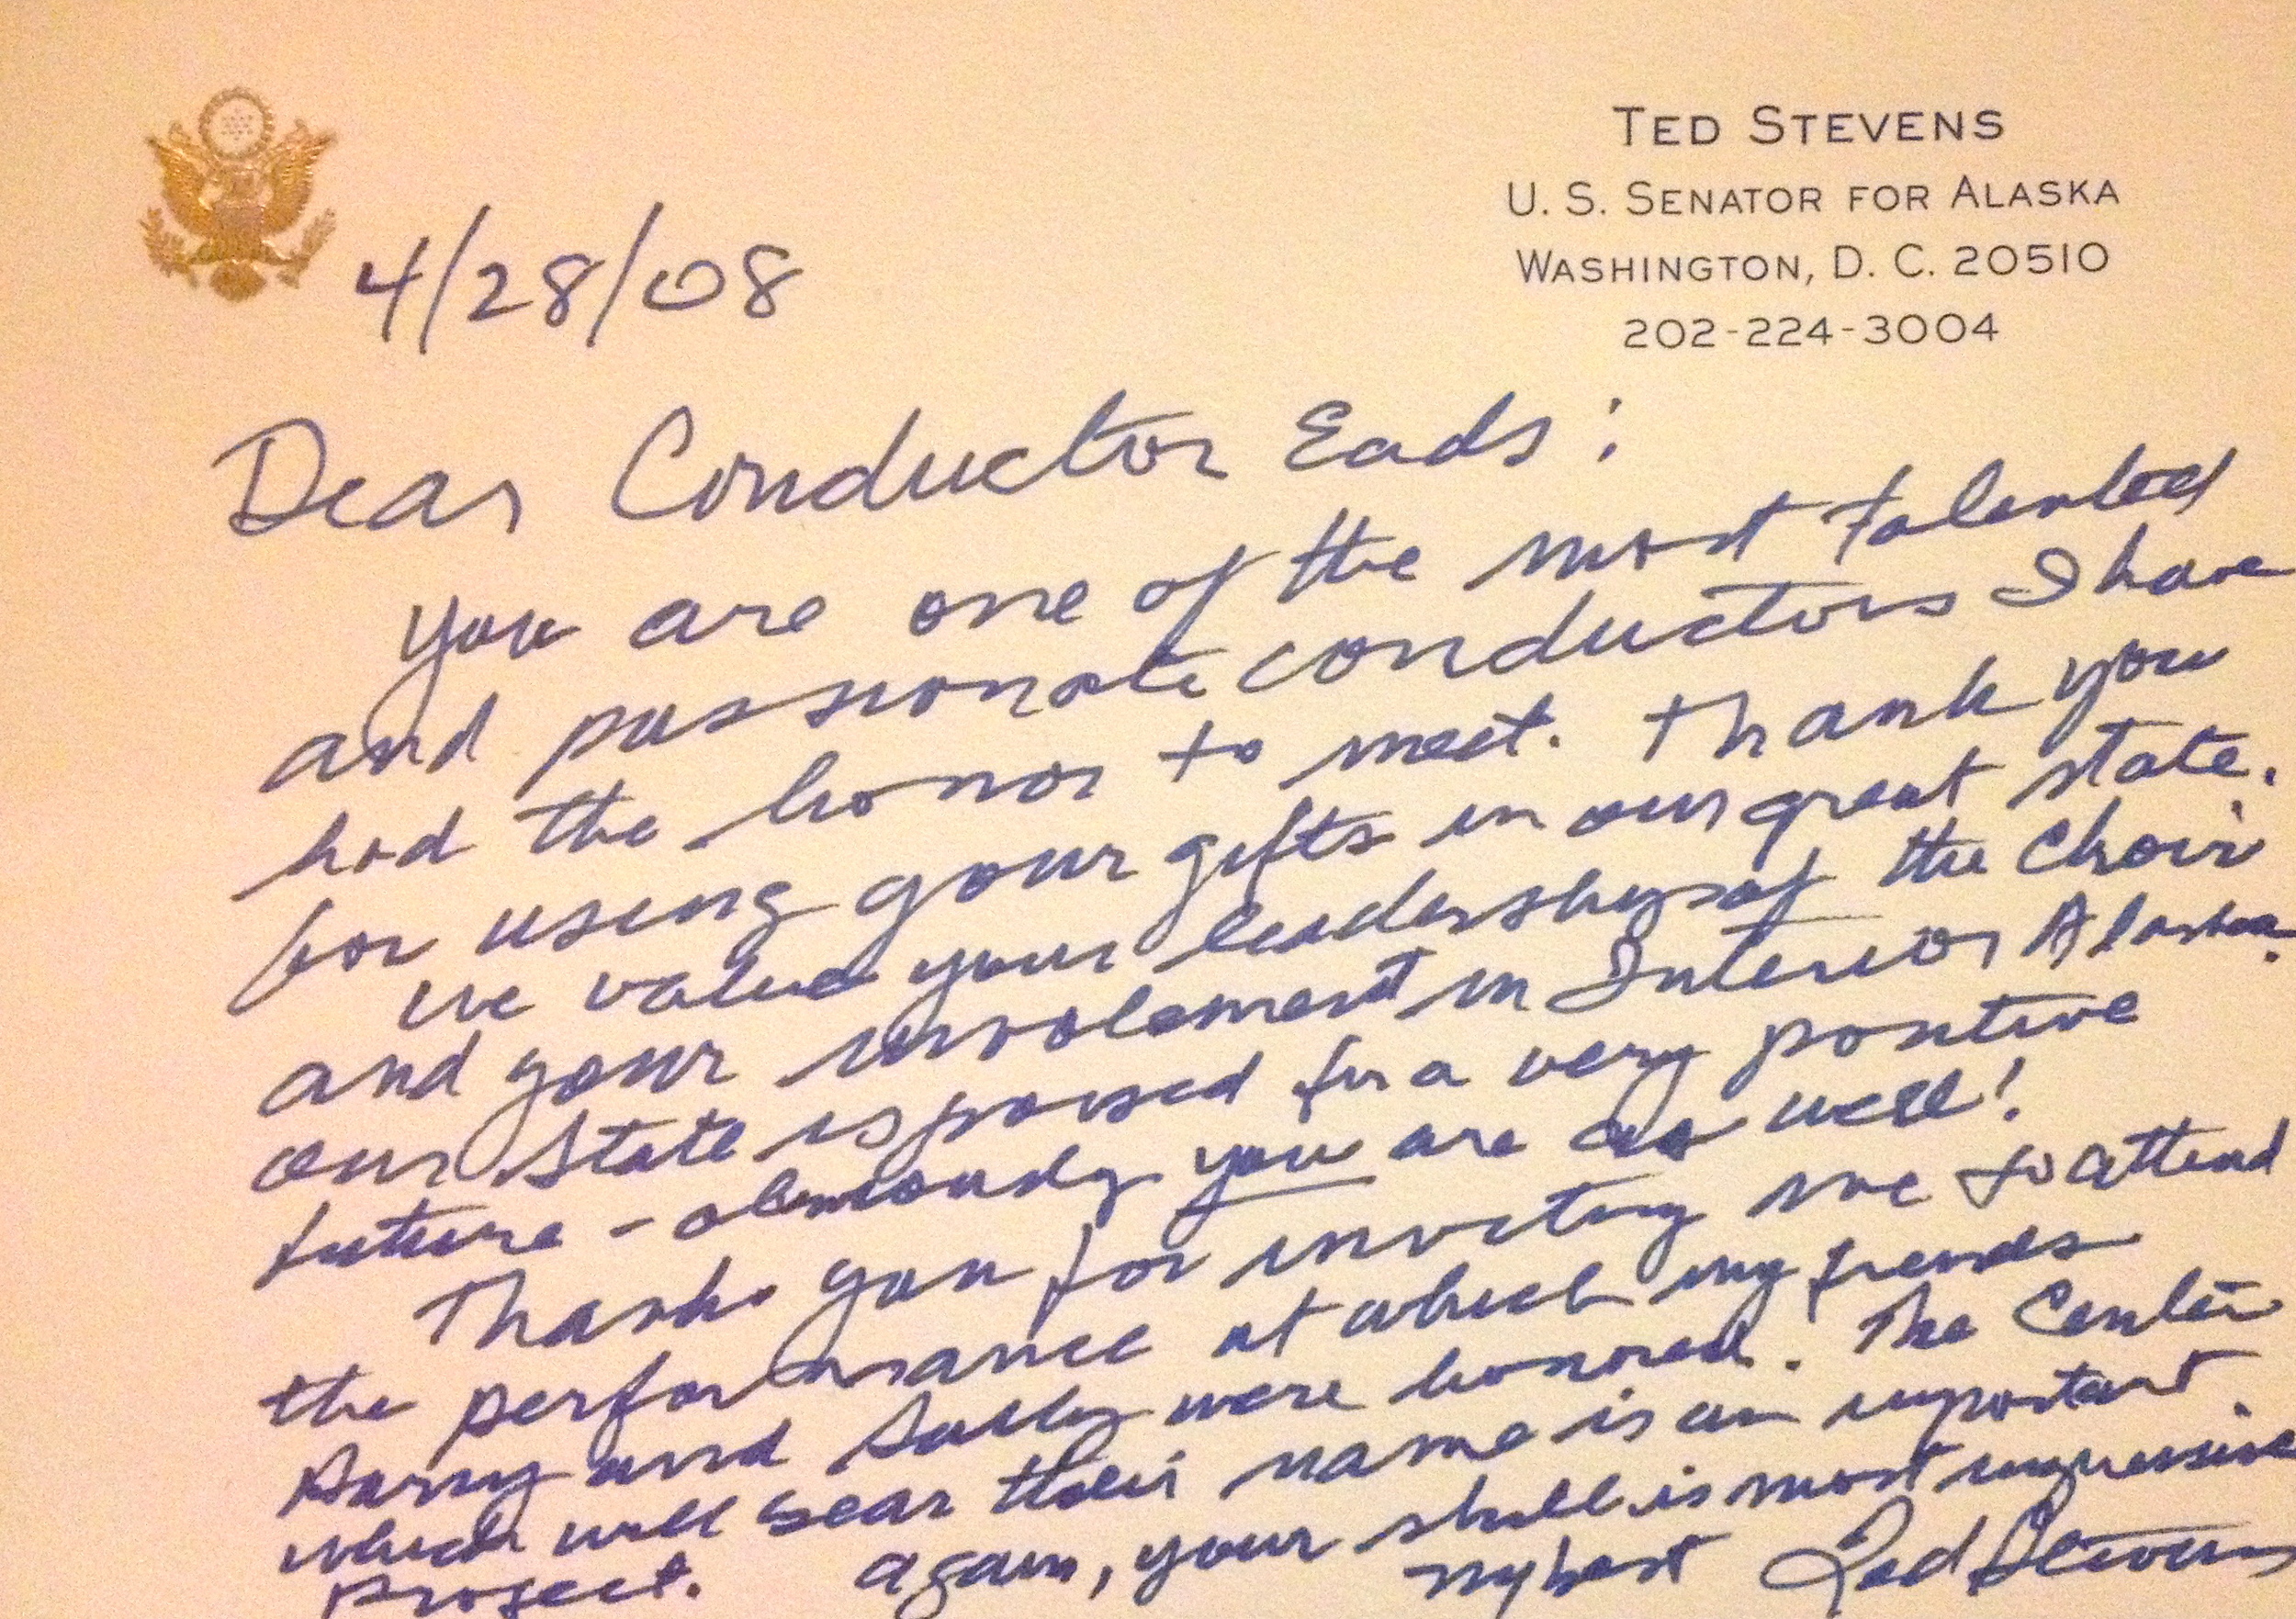 TED STEVENS
U. S. SENATOR FOR ALASKA
WASHINGTON, D. C. 20510
202-224-3004
4/28/08
Dear Conductor Eads:
you are one of the most talented
and passionate conductors I have
had the honor to meet. Thank you
for using your gifts in our great state.
We value your leadership of the choir
and your involement in Interior Alaska.
our State is poised for a very positive
future - obviously you are as well!
Thanks you for inviting me to attend
the performance at which my friends
and Sally were honored. The Center
which will bear their name is an important
project. again, your skill is most impressive
My best Ted Stevens